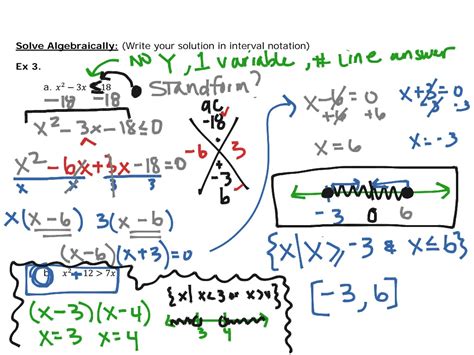 Solve Algebraically: (Write your solution in interval notation)
NO Y, 1 variable, # Line answer
Ex 3.
a. x² − 3x ≤ 18
−18 −18
STANDFORM?
x² − 3x − 18 ≤ 0
x² − 6x + 3x − 18 = 0
x x x 3 3
x(x − 6) 3(x − 6)
(x − 6)(x + 3) = 0
ac
−18
−6 3
+
−3
b
x − 6 = 0
+6 +6
x = 6
x + 3 = 0
−3 −3
x = −3
−3 0 6
{x | x ≥ −3 & x ≤ 6}
[−3, 6]
b. x² + 12 > 7x
(x − 3)(x − 4)
x = 3 x = 4
{x | x < 3 or x > 4}
3 4